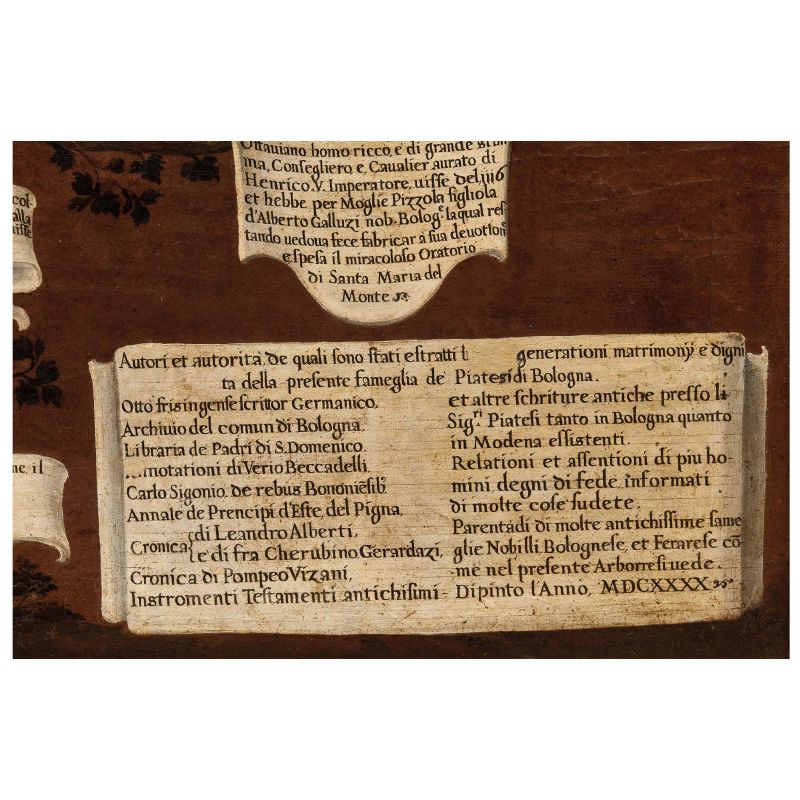 Ottauiano homo ricco, e di grande sti
ma, Consegliero, e, Caualier aurato di
Henrico. V. Imperatore, uisse del 1116
et hebbe per Moglie Pizzola figliola
d'Alberto Galluzi nob. Bologᵉ. la qual res
tando uedoua fece fabricar à sua deuotion
e spesa il miracoloso Oratorio
di Santa Maria del
Monte
col-
alla
uisse
me, il
Autori et autorità, de quali sono stati estratti l generationi matrimonÿ e digni
ta della presente fameglia de Piatesi di Bologna.
Otto frisingense scrittor Germanico,
Archiuio del comun di Bologna,
Libraria de Padri di S. Domenico,
notationi di Verio Beccadelli,
Carlo Sigonio, de rebus Bononiēsib.
Annale de Prencipi d'Este, del Pigna,
Cronica { di Leandro Alberti,
e di fra Cherubino Gerardazi,
Cronica di Pompeo Vizani,
Instromenti Testamenti antichisimi-
et altre schriture antiche presso li
Sigʳⁱ Piatesi tanto in Bologna quanto
in Modena essistenti.
Relationi et assentioni di piu ho-
mini, degni di fede, informati
di molte cose sudete,
Parentadi di molte antichissime fame
glie Nobilli Bolognese, et Ferarese cō-
me nel presente Arborresi uede.
Dipinto l'Anno, MDCXXXX